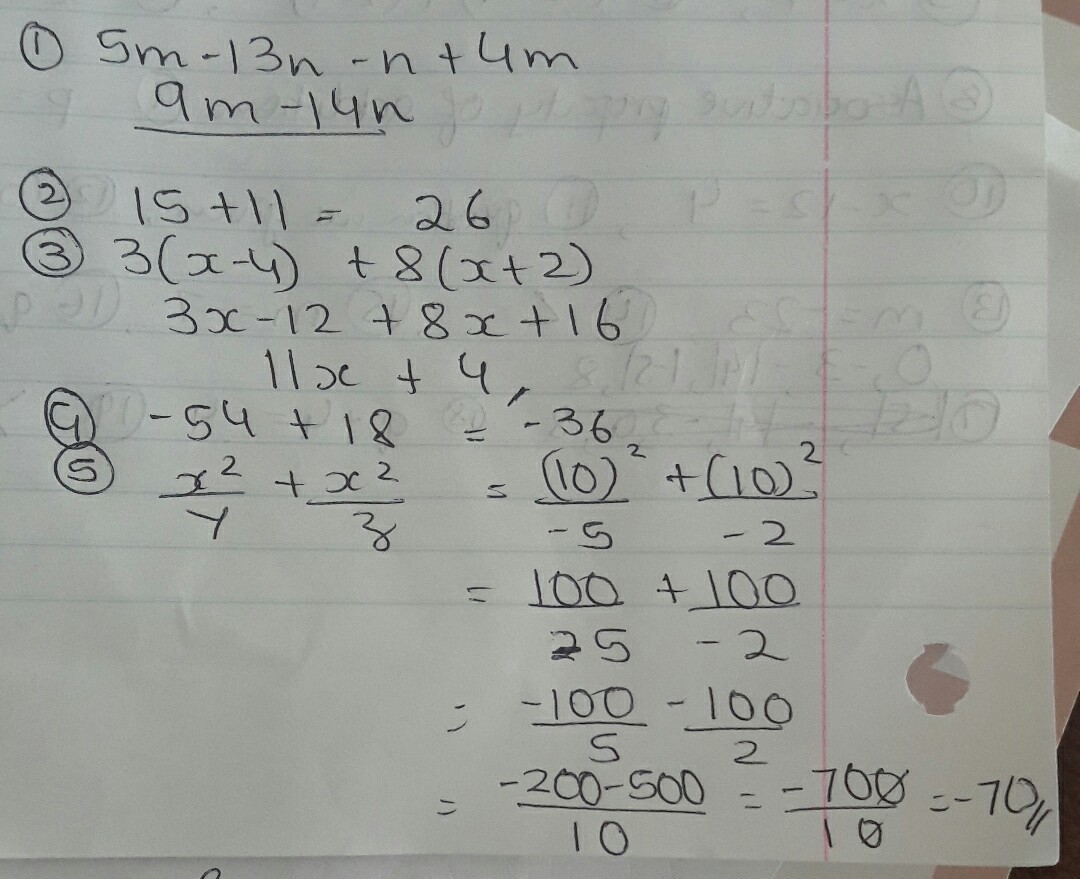 ① 5m-13n-n+4m
9m-14n
② 15+11 = 26
③ 3(x-4) +8(x+2)
3x-12 +8x+16
11x + 4,
④ -54 + 18 = -36
⑤ x²/y + x²/z = (10)²/-5 + (10)²/-2
= 100/25 + 100/-2
= -100/5 - 100/2
= -200-500/10 = -700/10 = -70//